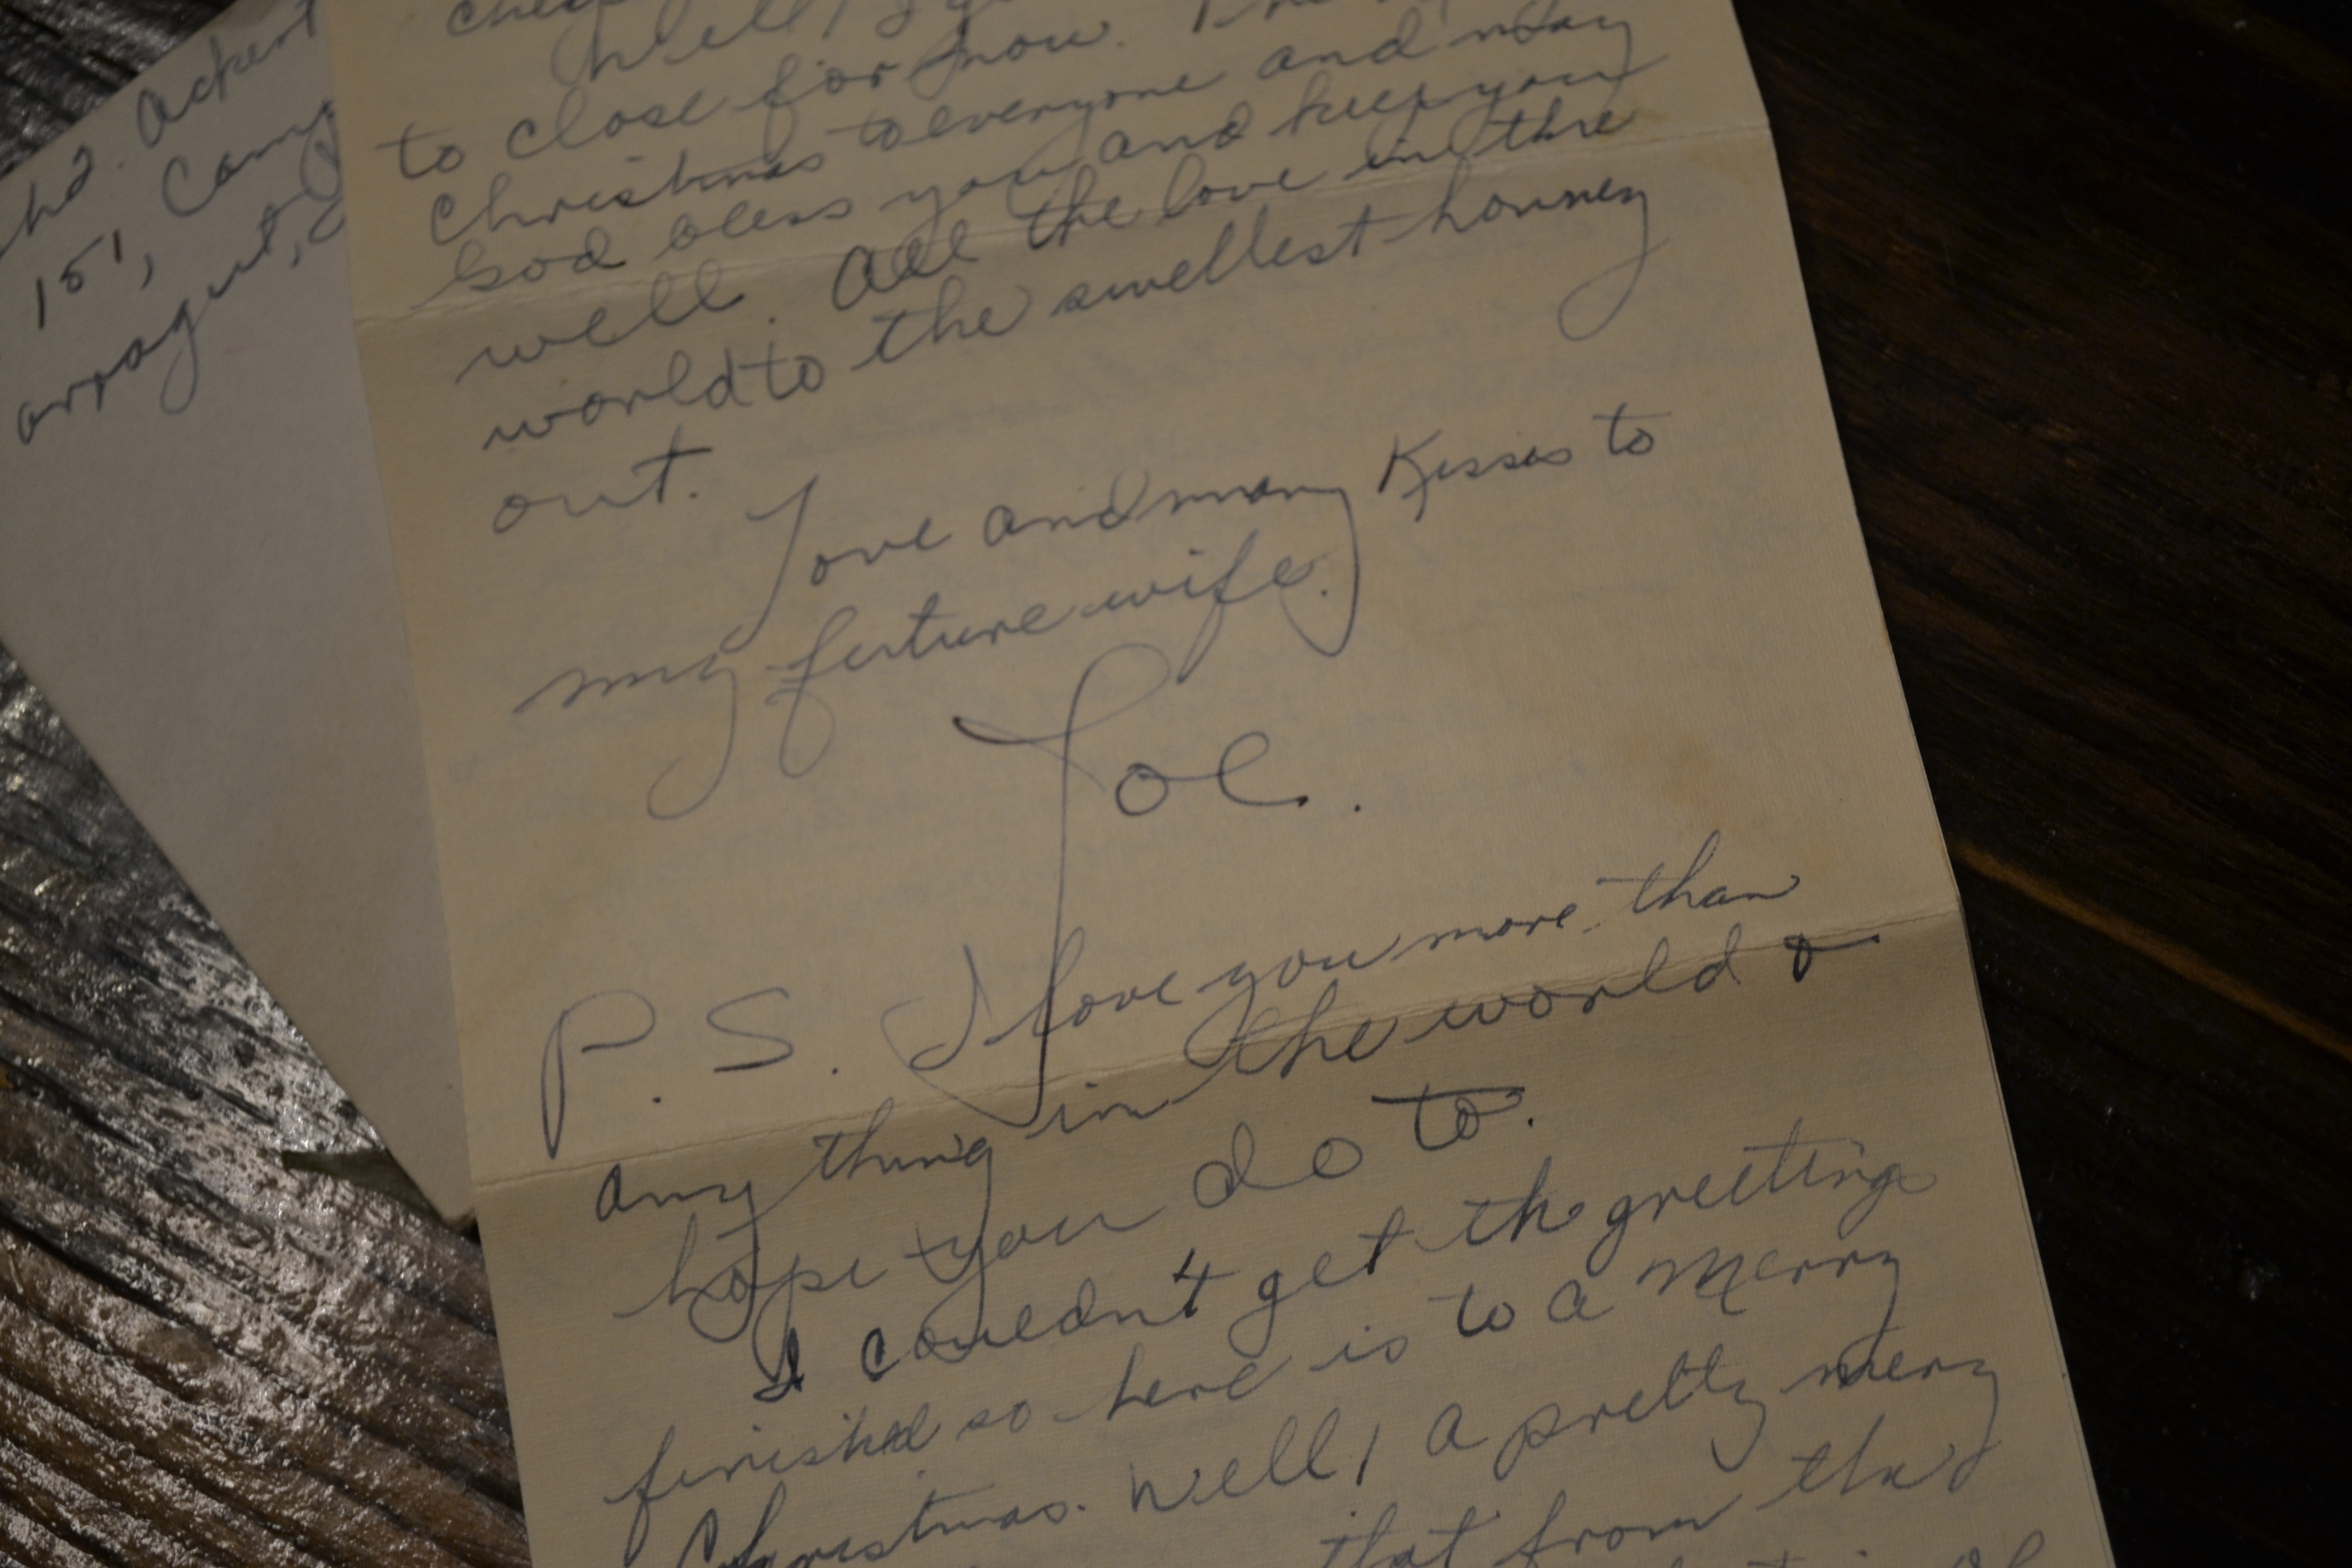 h2. Ackert
151, Camp
close for now.
to close for now.
Christmas to everyone and may
God bless you and keep you
well. All the love in the
world to the swellest honney
out.
Love and many Kisses to
my future wife.
Joe.
P.S. I love you more than
anything in the world &
hope you do to.
I couldn't get the greetings
finished so here is to a Merry
Christmas. Well, a pretty merry
that from the